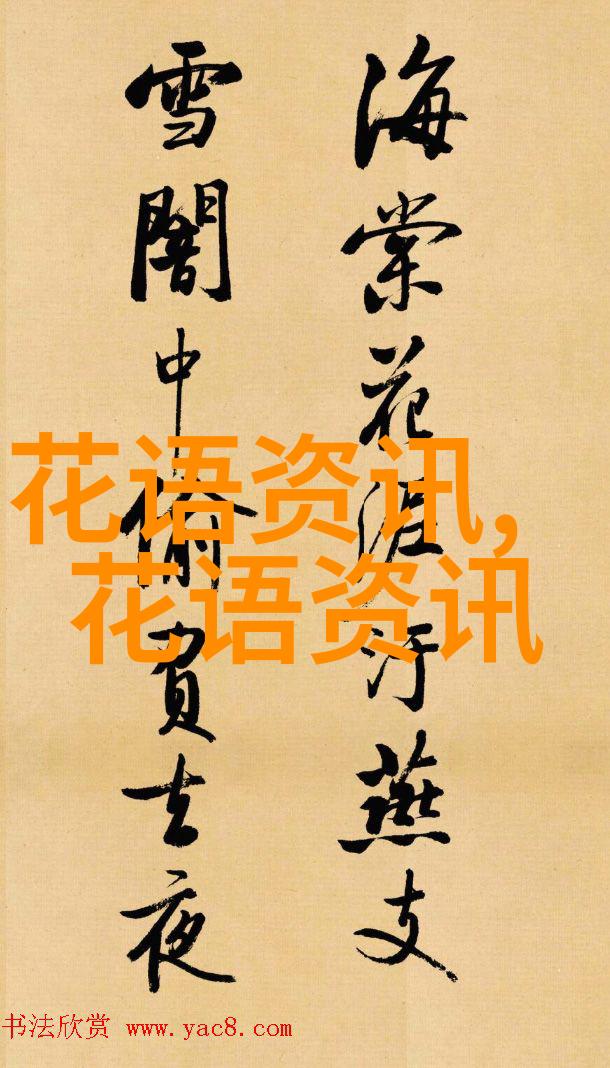 海棠花泥汙燕支
雪闇中偷負去夜
花语资讯,
花语资讯
书法欣赏 www.yac8.com